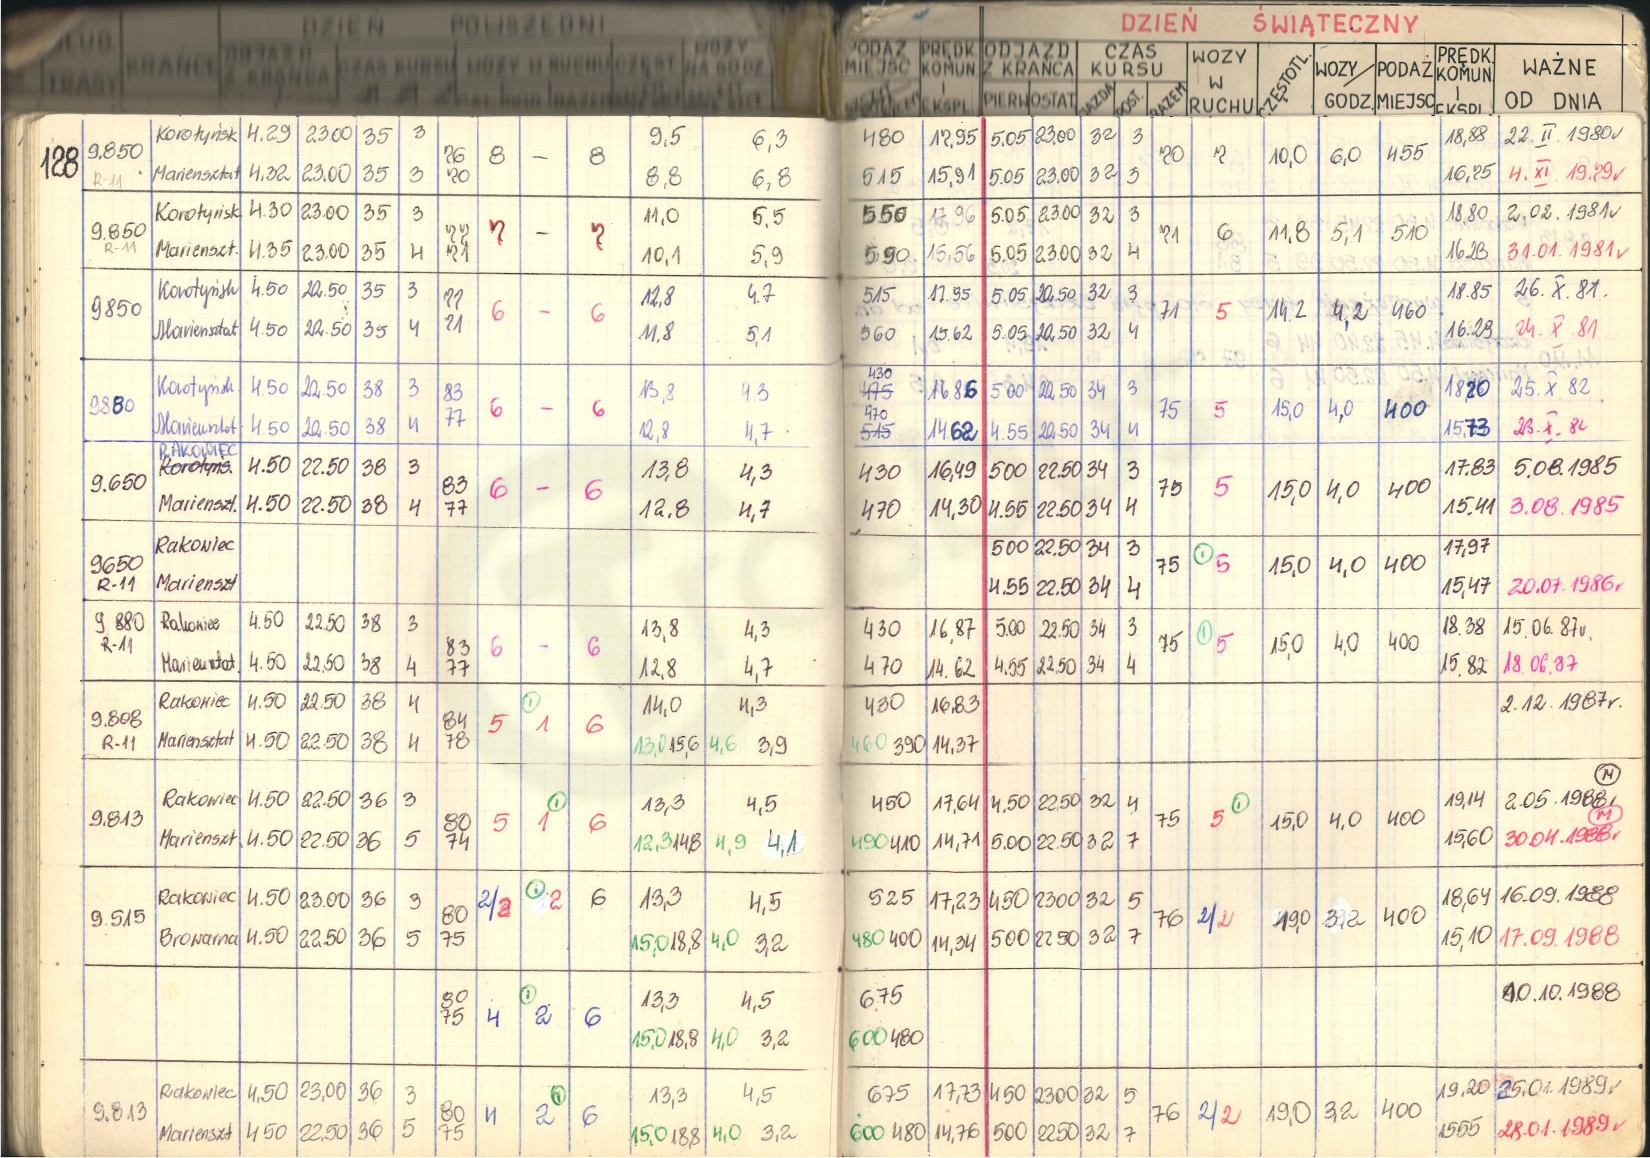 DZIEŃ POWSZEDNI DZIEŃ ŚWIĄTECZNY
DŁUG TRASY KRAŃCE ODJAZD Z KRAŃCA CZAS KURSU WOZY W RUCHU CZĘST. WOZY NA GODZ. PODAŻ MIEJSC PRĘDK. KOMUN. I EKSPL. ODJAZD Z KRAŃCA CZAS KURSU WOZY W RUCHU CZĘSTOTL. WOZY/GODZ. PODAŻ MIEJSC PRĘDK. KOMUN. I EKSPL. WAŻNE OD DNIA
PIERW OSTAT. JAZDA POST. RAZEM
128 9.850 Korotyńsk 4.29 23.00 35 3 76 8 – 8 9,5 6,3 480 17,95 5.05 23.00 32 3 70 7 10,0 6,0 455 18,88 22.II.1980r
R-11 Mariensztat 4.32 23.00 35 3 70 8,8 6,8 515 15,91 5.05 23.00 32 3 16,75 4.XI.1979r
9.850 Korotyńsk 4.30 23.00 35 3 77 7 – 7 11,0 5,5 550 17.96 5.05 23.00 32 3 71 6 11,8 5,1 510 18,80 2.02.1981r
R-11 Marienszt. 4.35 23.00 35 4 71 10,1 5,9 590 15,56 5.05 23.00 32 4 16.23 31.01.1981r
9850 Korotyńsk 4.50 22.50 35 3 77 6 – 6 12,8 4.7 515 17.95 5.05 22.50 32 3 71 5 14.2 4,2 460 18.85 26.X.81.
Mariensztat 4.50 22.50 35 4 71 11,8 5,1 560 15.62 5.05 22.50 32 4 16.23 24.X 81
9880 Korotyńsk 4.50 22.50 38 3 83 6 – 6 13,8 4 3 430 475 1686 500 22.50 34 3 75 5 15,0 4,0 400 1820 25.X 82
Mariensztat 4.50 22.50 38 4 77 12,8 4,7 470 515 14.62 4.55 22.50 34 4 15,73 23.X.82
RAKOWIEC
9.650 Korotyńs. 4.50 22.50 38 3 83 6 – 6 13,8 4,3 430 16,49 500 22.50 34 3 75 5 15,0 4,0 400 17.83 5.08.1985
Marienszt. 4.50 22.50 38 4 77 12.8 4,7 470 14,30 4.55 22.50 34 4 15.41 3.08.1985
9650 Rakowiec 500 22.50 34 3 75 ① 5 15,0 4,0 400 17,97
R-11 Marienszt 4.55 22.50 34 4 15,47 20.07.1986r
9 880 Rakowiec 4.50 22.50 38 3 83 6 – 6 13,8 4,3 430 16,87 5.00 22.50 34 3 75 ① 5 15,0 4,0 400 18.38 15.06.87r.
R-11 Mariensztat. 4.50 22.50 38 4 77 12,8 4,7 470 14.62 4.55 22.50 34 4 15.82 18.06.87
9.808 Rakowiec 4.50 22.50 38 4 84 5 ① 1 6 14,0 4,3 430 16.83 2.12.1987r.
R-11 Mariensztat 4.50 22.50 38 4 78 13,0 15,6 4,6 3,9 460 390 14,37
9.813 Rakowiec 4.50 22.50 36 3 80 5 ① 1 6 13,3 4,5 450 17,64 4.50 22.50 32 4 75 5 ① 15,0 4,0 400 19,14 2.05.1988r M
Marienszt 4.50 22.50 36 5 74 12,3 14,8 4,9 4,1 490 410 14,71 5.00 22.50 32 7 15,60 30.04.1988r M
9.515 Rakowiec 4.50 23.00 36 3 80 2/2 ① 2 6 13,3 4,5 525 17,23 450 2300 32 5 76 2/2 19,0 3,2 400 18,64 16.09.1988
Browarna 4.50 22.50 36 5 75 15,0 18,8 4,0 3,2 480 400 14,34 500 2250 32 7 15,10 17.09.1988
80 4 ① 2 6 13,3 4,5 675 10.10.1988
75 15,0 18,8 4,0 3,2 600 480
9.813 Rakowiec 4.50 23,00 36 3 80 4 2 6 13,3 4,5 675 17,73 450 2300 32 5 76 2/2 19,0 32 400 19,20 25.01.1989r
Marienszt 4 50 22.50 36 5 75 15,0 18,8 4,0 3,2 600 480 14,76 500 2250 32 7 1555 28.01.1989r